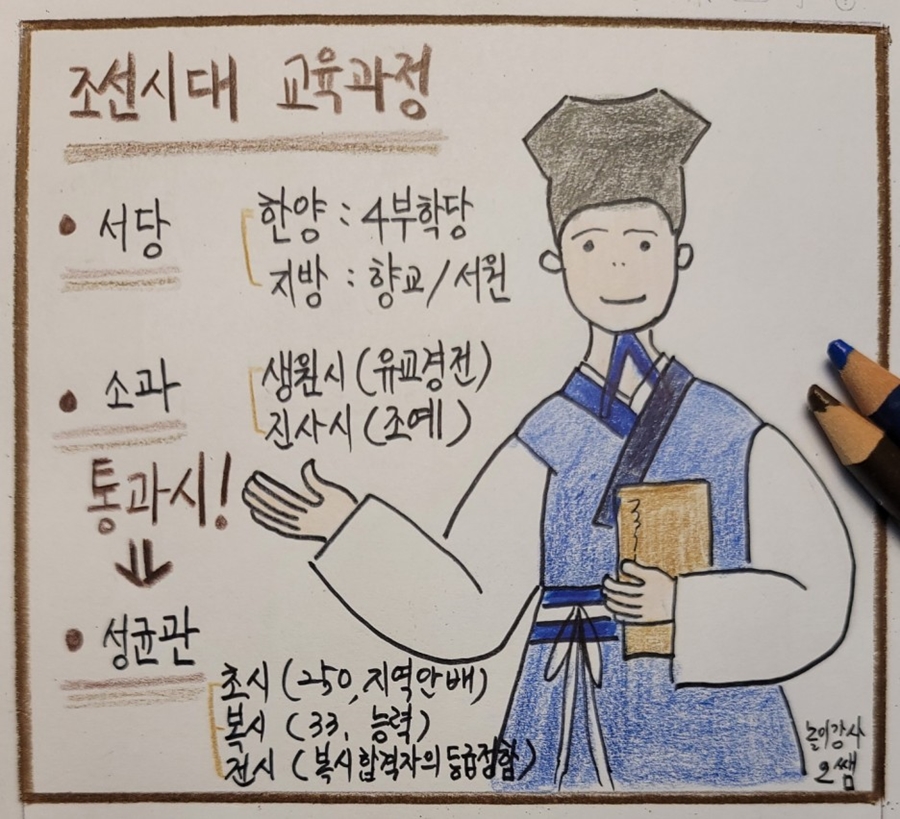 조선시대 교육과정
• 서당
한양 : 4부학당
지방 : 향교/서원
• 소과
생원시 (유교경전)
진사시 (조예)
통과시!
• 성균관
초시 (250, 지역안배)
복시 (33, 능력)
전시 (복시합격자의 등급정함)
놀이강사
오쌤